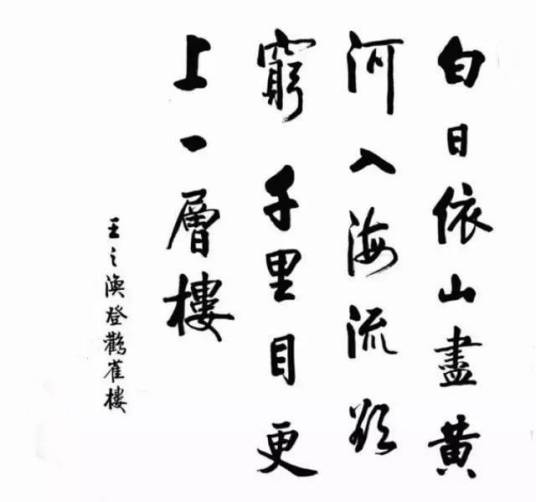 白日依山盡黄
河入海流欲
窮千里目更
上一層樓
王之渙登鸛雀樓